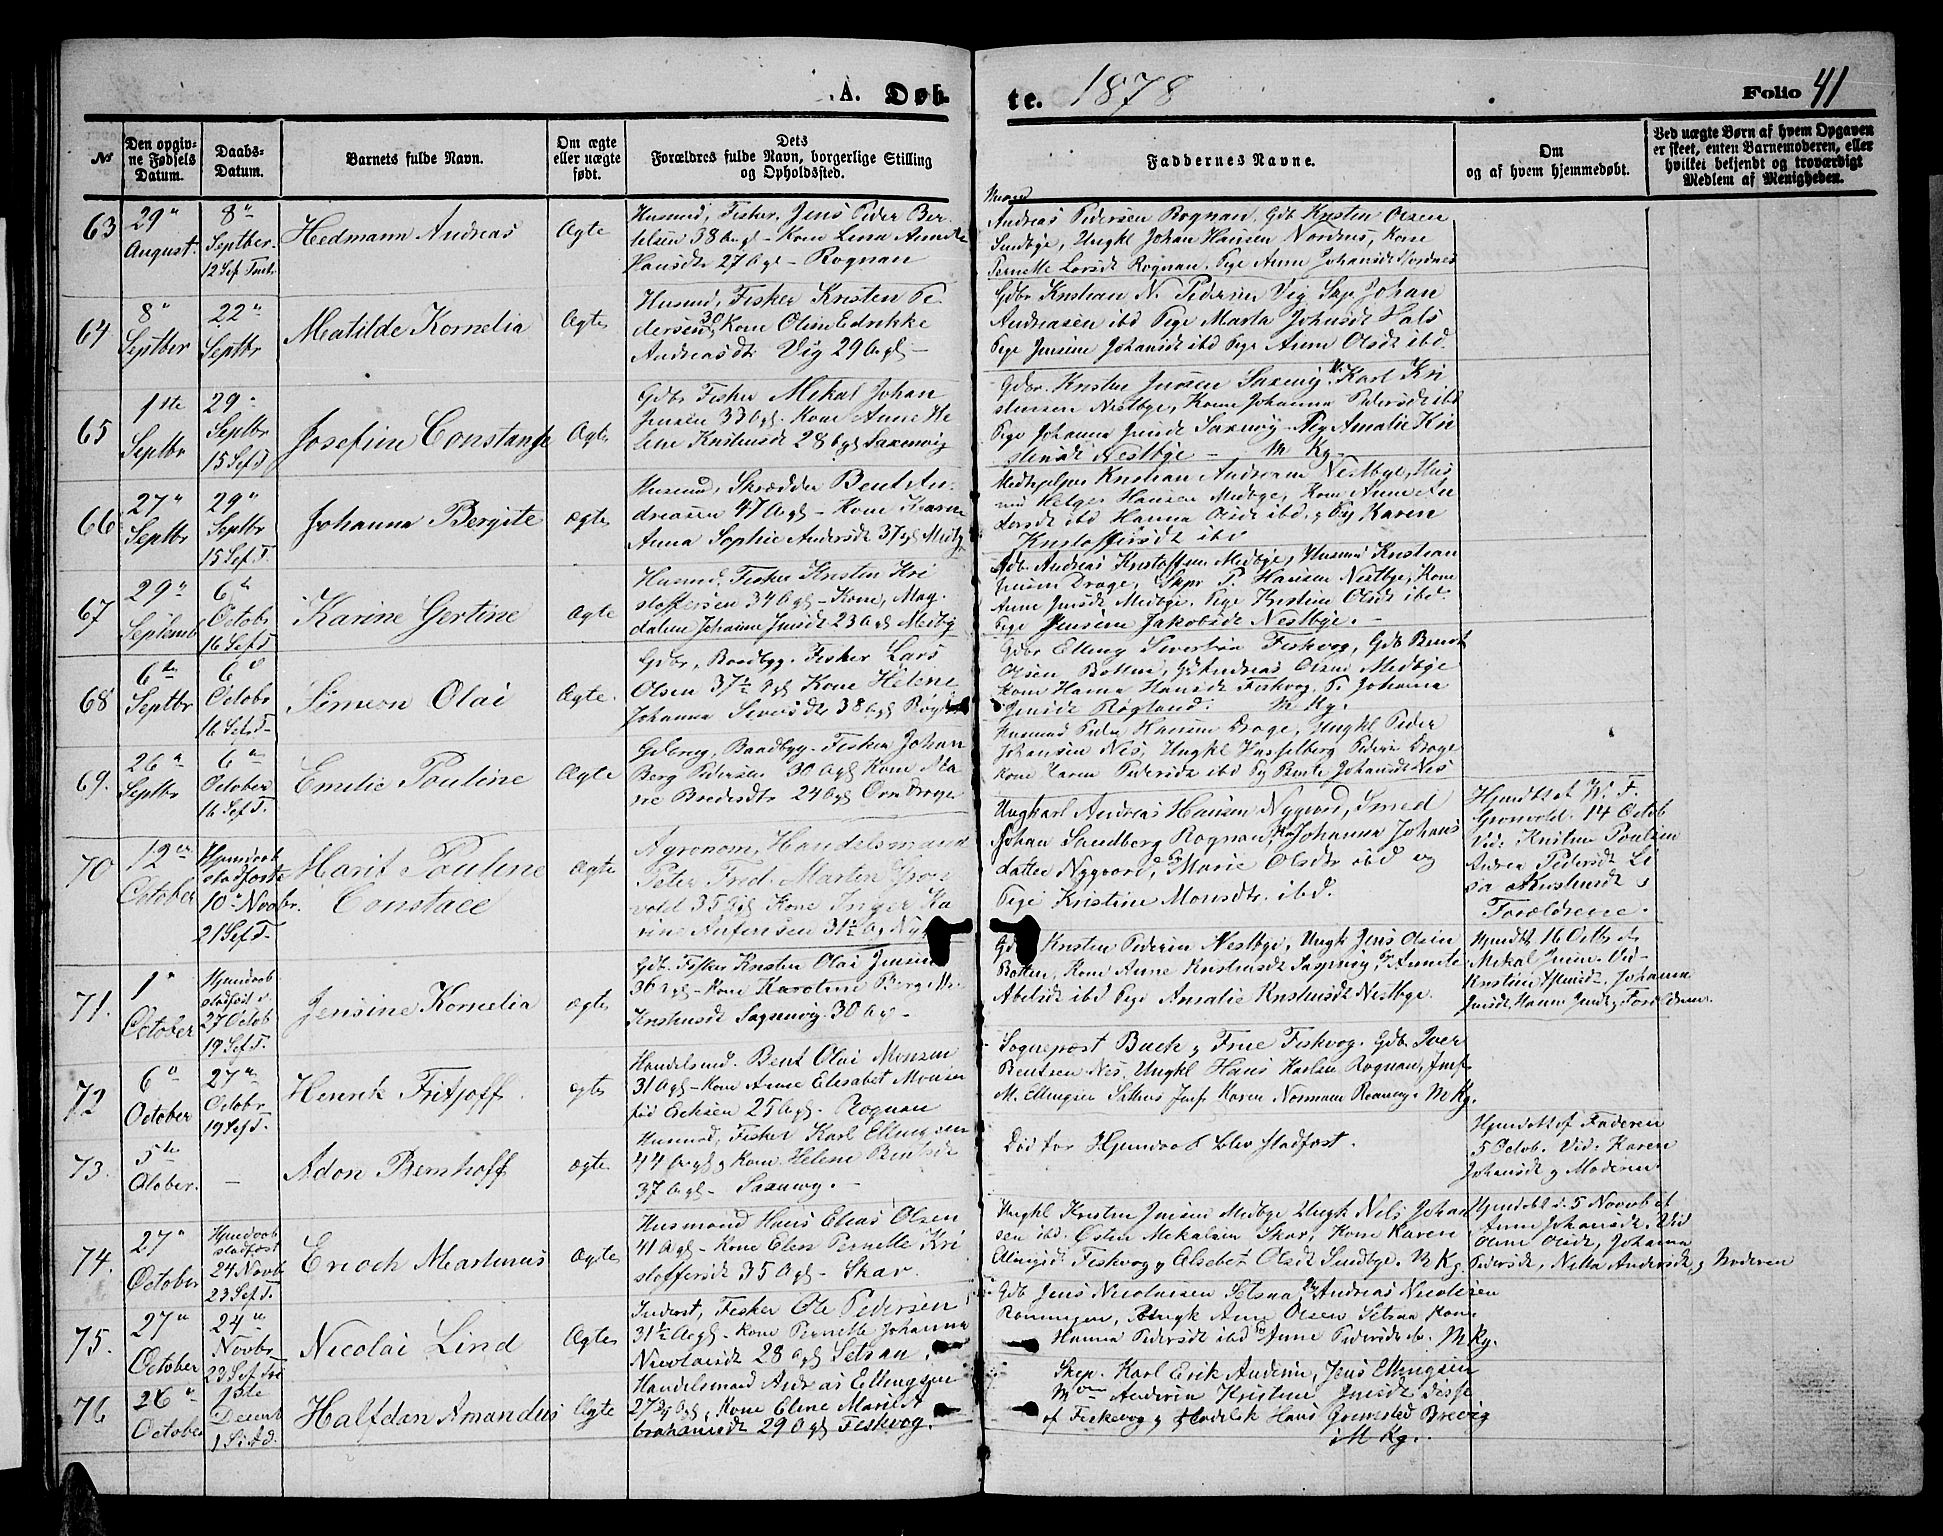 A. Døb-
te. 1878
Folio 41
№
Den opgiv-
ne Fødsels
Datum.
Daabs-
Datum.
Barnets fulde Navn.
Om ægte
eller uægte
født.
Dets
Forældres fulde Navn, borgerlige Stilling
og Opholdssted.
Faddernes Navne.
Om
og af hvem hjemmedøbt.
Ved uægte Børn af hvem Opgaven
er skeet, enten Barnemoderen, eller
hvilket beljendt og troværdigt
Medlem af Menigheden.
63
29"
August.
8"
Septber.
Hedmann Andreas
Ægte
Husmd, Fisker, Jens Peder Ber
telsen 38 Ag – Kone Lina
Hansdtr 27 Ag – Rognan
Andreas Pedersen Rognan, Gdb Kristen Olsen
Sundbye, Ungkl Johan Hansen Nordnes, Kone
Pernette Larsdt Rognan, Pige Anne Johansdt Nordnes
64
8"
Septber
22"
Septbr
Matilde Kornelia
Ægte
Husmd, Fisker Kristen Pe
dersen 30, Kone Olin Edrikke
Andreasdtr Vig 29 Ag –
Gdbr Kristian N. Pedersen Vig Skp. Johan
Andreasen ibd Pige Marta Johnsdt Vals
Pige Jensine Johansdt ibd Pige Anne Olsdt ibd.
65
1ste
Septbr
29"
Septbr
15 Sef T
Josefine Constanse
Ægte
Gdbr Fisker Mikal Johan
Jensen 33 Ag – Kone Anne He
lene Kristensdt 28 Ag Saxenvig
Gdbr. Kristen Jensen Saxenvig, Karl Kri
stensen Nestbye, Kone Johanna Pedersdt ibd
Pige Johanna Jensdt Saxenvig – Pig Amalie Kri
stensdt Nestbye – M Kg –
66
27"
Septbr
29"
Septbr
15 Sef T.
Johanna Bergite
Ægte
Husmd, Skrædder Bent An-
dreasen 47 Ag – Kone Karen
Anna Sophie Andersdt 37 Medby
Medhjelper Kristian Andreasen Nestbye, Hus
md Helge Hansen Medbye, Kone Anne An
dersdt ibd Hanna Olsdt ibd, g Pig Karen
Kristoffersdt ibd
67
29"
Septemb
6te
Octobr
16 Sef T
Karine Gertine
Ægte
Husmd. Fisker Kristen Kri
stoffersen 34 Ag – Kone, Mag
dalene Johanne Jensdt 23 Ag Medby
Gdb. Andreas Kristoffersen Medbye, Husmd Kristian
Jensen Drage, Skpr P. Hansen Nestbye, Kone
Anne Jensdt Medbye. Pige Kristine Olsdt ibd.
Pige Jensine Jakobsdt Nestbye. –
68
6te
Septbr
6"
Octobr
16 Sef T –
Simeon Olai
Ægte.
Gdbr, Baadbyg. Fisker Lars
Olsen 37½ Ag Kone Helene
Johanna Siversdtr 38 Ag
Gdbr Elling Sivertsen Fiskvog, Gdb Bendt
Olsen Botten, Gd Andreas Olsen Medbye
Kone Hanna Hansdt Fiskvog. P. Johanna
Jensdt Røgland. M. Kg.
69.
26"
Septbr
6"
October
16 Sef T.
Emelie Pauline
Ægte
Baadbyg. Fisker Johan
Berg Pedersen 30 Ag Kone Ma
rie Bredesdtr 24 Ag Drage
Husmd Peder Hansen Drage, Ungkl Peder
Johansen Nes, Ungkl Hasselberg Pedersen Drage
Kone Karen Pedersdt ibd Pg Bente Johansdt Nes
70
12"
October
Hjemdaab
stadfæste
10" Novbr.
21 Sef T.
Marit Pauline
Constace
Ægte
Agronom, Handelsmand
Peter Fred. Martin Gron
vold 35 Ag Kone Inger Ka
rine Anfinsen 31½ Ag
Ungkarl Andreas Hansen Nygvord, Smed
Johan Sandberg Rognan, Johanna Johans
datter Nygvord, Marie Olsdtr ibd og
Pige Kristine Monsdtr. ibd.
Hjemdbt af W. F.
Gronvold. 14 Octob
Vid: Kristen Poulsen
Andrea Pedersdt Li
sa Kristensdt g
Forældrene.
71.
1"
October
Hjemdaab
27 Octob
19 Sef T.
Jensine Kornelia
Ægte
Gdb. Fisker Kristen Olai Jensen
36 Ag – Kone Karoline Berg
Kristensdt Saxenvig 30 Ag –
Gdbr Kristen Pedersen Nestbye, Ungk Jens Olsen
Botten, Kone Anne Kristensdt Saxenvig, Annete
Abelsdt ibd Pige Amalie Kristensdt Nestbye.
Hjemdbt 16 Octbr af
Mikal Jensen. Vid –
Kristine Jensdt. Johanna
Jensdt, Hanna Jensdt g Forældrene.
72
6"
October
27"
Octobr
19 Sef T.
Henrik Fritjoff
Ægte
Handelsmd. Bent Olai Monsen
31 Ag – Kone Anne Elisabet Monsen
fød Ericksen 25 Ag. Rognan
Sognepræst Buck g Frue Fiskvog. Gdb Iver
Bentsen Nes, Ungkl Hans Karlsen Rognan, Jmf.
M. Ellingsen Setnes Jmf. Karen Normann M Kg.
73.
5te
October.
–
Adon Bernhoff
Ægte
Husmd, Fisker Karl Ellingsen
44 Ag g Kone Helene Bentsdt
37 Ag – Saxenvig. –
Død før Hjemdaab blev stadfæst.
Hjemdøbt af Faderen
5 Octob. Vid. Karen
Johansdt g Moderen.
74.
27"
October
Hjemdaab
stadfæst
24 Novb
23 Sef T.
Enoch Martinus
Ægte
Husmand Hans Elias Olsen
41 Ag – Kone Elen Pernette Kri
stoffersdt 35 Ag – Skar.
Ungkl Kristen Jensen Medbye Ungk Nels Johan
sen ibd. Østen Mekalsen Skar, Kone Karen
Ellingsdt Fiskvog g Elsebet Olsdt Sundbye. M Kg
Hjemdbt d. 5 Novb af
Anne Johansdt. Vid
Oline Olsdt, Johanna
Pedersdt, Netta Andersdt g Moderen
75.
27"
October
24"
Novbr
23 Sef Tri
Nicolai Lind
Ægte
Inderst, Fisker Ole Pedersen
31½ Ag – Kone Pernette Johanna
Nicolaisdt 28 Ag Setsaa.
Gdb Jens Nicolaisen Setsaa Andreas Nicolaisen
Anne Olsen Setsaa Kone
Hanna Pedersdt ibd Anne Pedersdt M Kg.
76
26"
October
1ste
Decemb
1 S i Ad.
Halfdan Amandus
Ægte
Handelsmand Andreas Ellingsen
27¾ Ag, Kone Eline Marie A
brahamsdt 29 Ag Fiskvog.
Skp. Karl Erik Andersen, Jens Ellingsen
Andersen Kristine Jensdt disse
af Fiskevog g Handelsk Hans Grimsted Brevig
M Kg.